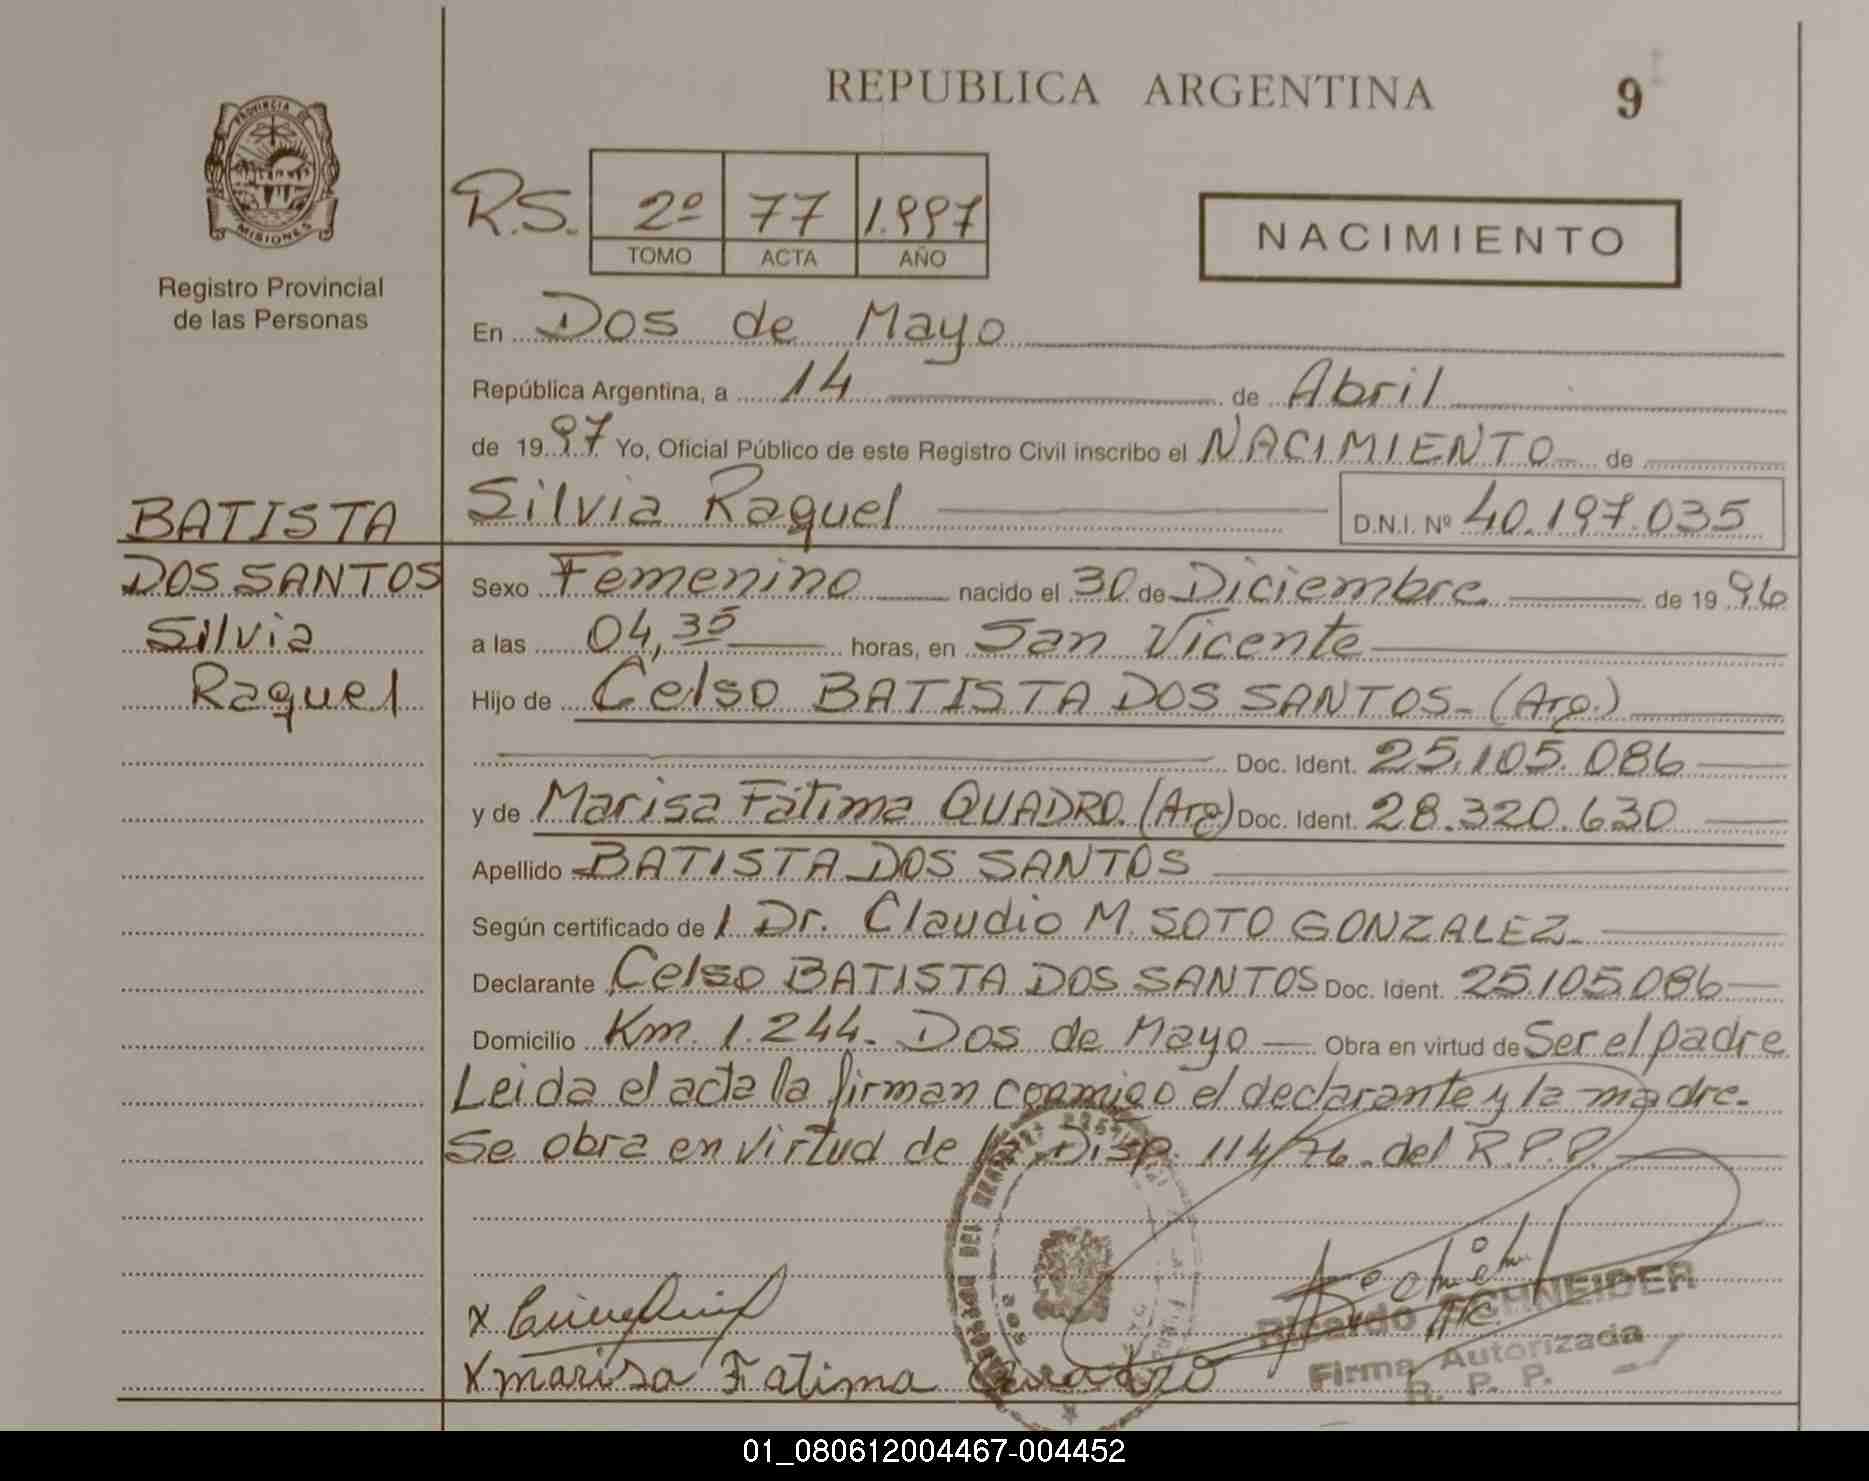 REPUBLICA ARGENTINA
9
PROVINCIA DE
MISIONES
Registro Provincial
de las Personas
R.S.
2º 77 1.997
TOMO ACTA AÑO
NACIMIENTO
En Dos de Mayo
República Argentina, a 14 de Abril
de 1997 Yo, Oficial Público de este Registro Civil inscribo el NACIMIENTO de
Silvia Raquel D.N.I. Nº 40.197.035
BATISTA
DOS SANTOS
Silvia
Raquel
Sexo Femenino nacido el 30 de Diciembre de 1996
a las 04,35 horas, en San Vicente
Hijo de Celso BATISTA DOS SANTOS- (Arg.)
Doc. Ident. 25.105.086
y de Marisa Fátima QUADRO. (Arg) Doc. Ident. 28.320.630
Apellido BATISTA DOS SANTOS
Según certificado de l Dr. Claudio M. SOTO GONZALEZ-
Declarante Celso BATISTA DOS SANTOS Doc. Ident. 25.105.086
Domicilio Km. 1.244- Dos de Mayo Obra en virtud de Ser el padre
Leida el acta la firman conmigo el declarante y la madre-
Se obra en virtud de la Disp. 114/76-del R.P.P.
Ricardo SCHNEIDER
Firma Autorizada
R. P. P.
x marisa Fatima Quadro
01_080612004467-004452